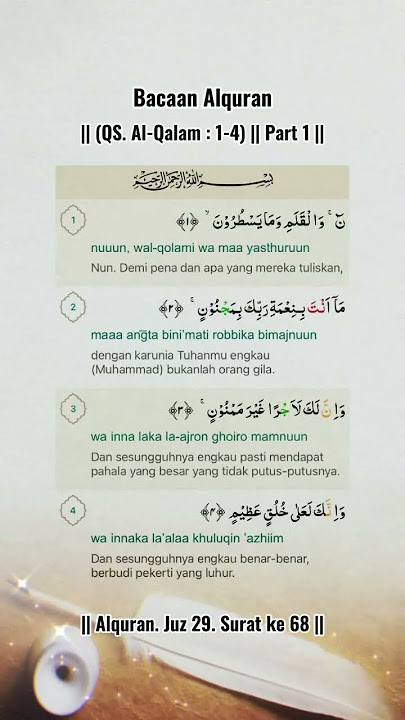 Bacaan Alquran
|| (QS. Al-Qalam : 1-4) || Part 1 ||
بِسْمِ اللّٰهِ الرَّحْمٰنِ الرَّحِيْمِ
1
نۤ ۚ وَالْقَلَمِ وَمَا يَسْطُرُوْنَ ۙ ﴿١﴾
nuuun, wal-qolami wa maa yasthuruun
Nun. Demi pena dan apa yang mereka tuliskan,
2
مَاۤ اَنْتَ بِـنِعْمَةِ رَبِّكَ بِمَجْنُوْنٍ ۚ ﴿٢﴾
maaa angta bini'mati robbika bimajnuun
dengan karunia Tuhanmu engkau
(Muhammad) bukanlah orang gila.
3
وَاِنَّ لَكَ لَاَجْرًا غَيْرَ مَمْنُوْنٍ ۚ ﴿٣﴾
wa inna laka la-ajron ghoiro mamnuun
Dan sesungguhnya engkau pasti mendapat
pahala yang besar yang tidak putus-putusnya.
4
وَاِنَّكَ لَعَلٰى خُلُقٍ عَظِيْمٍ ﴿٤﴾
wa innaka la'alaa khuluqin 'azhiim
Dan sesungguhnya engkau benar-benar,
berbudi pekerti yang luhur.
|| Alquran. Juz 29. Surat ke 68 ||